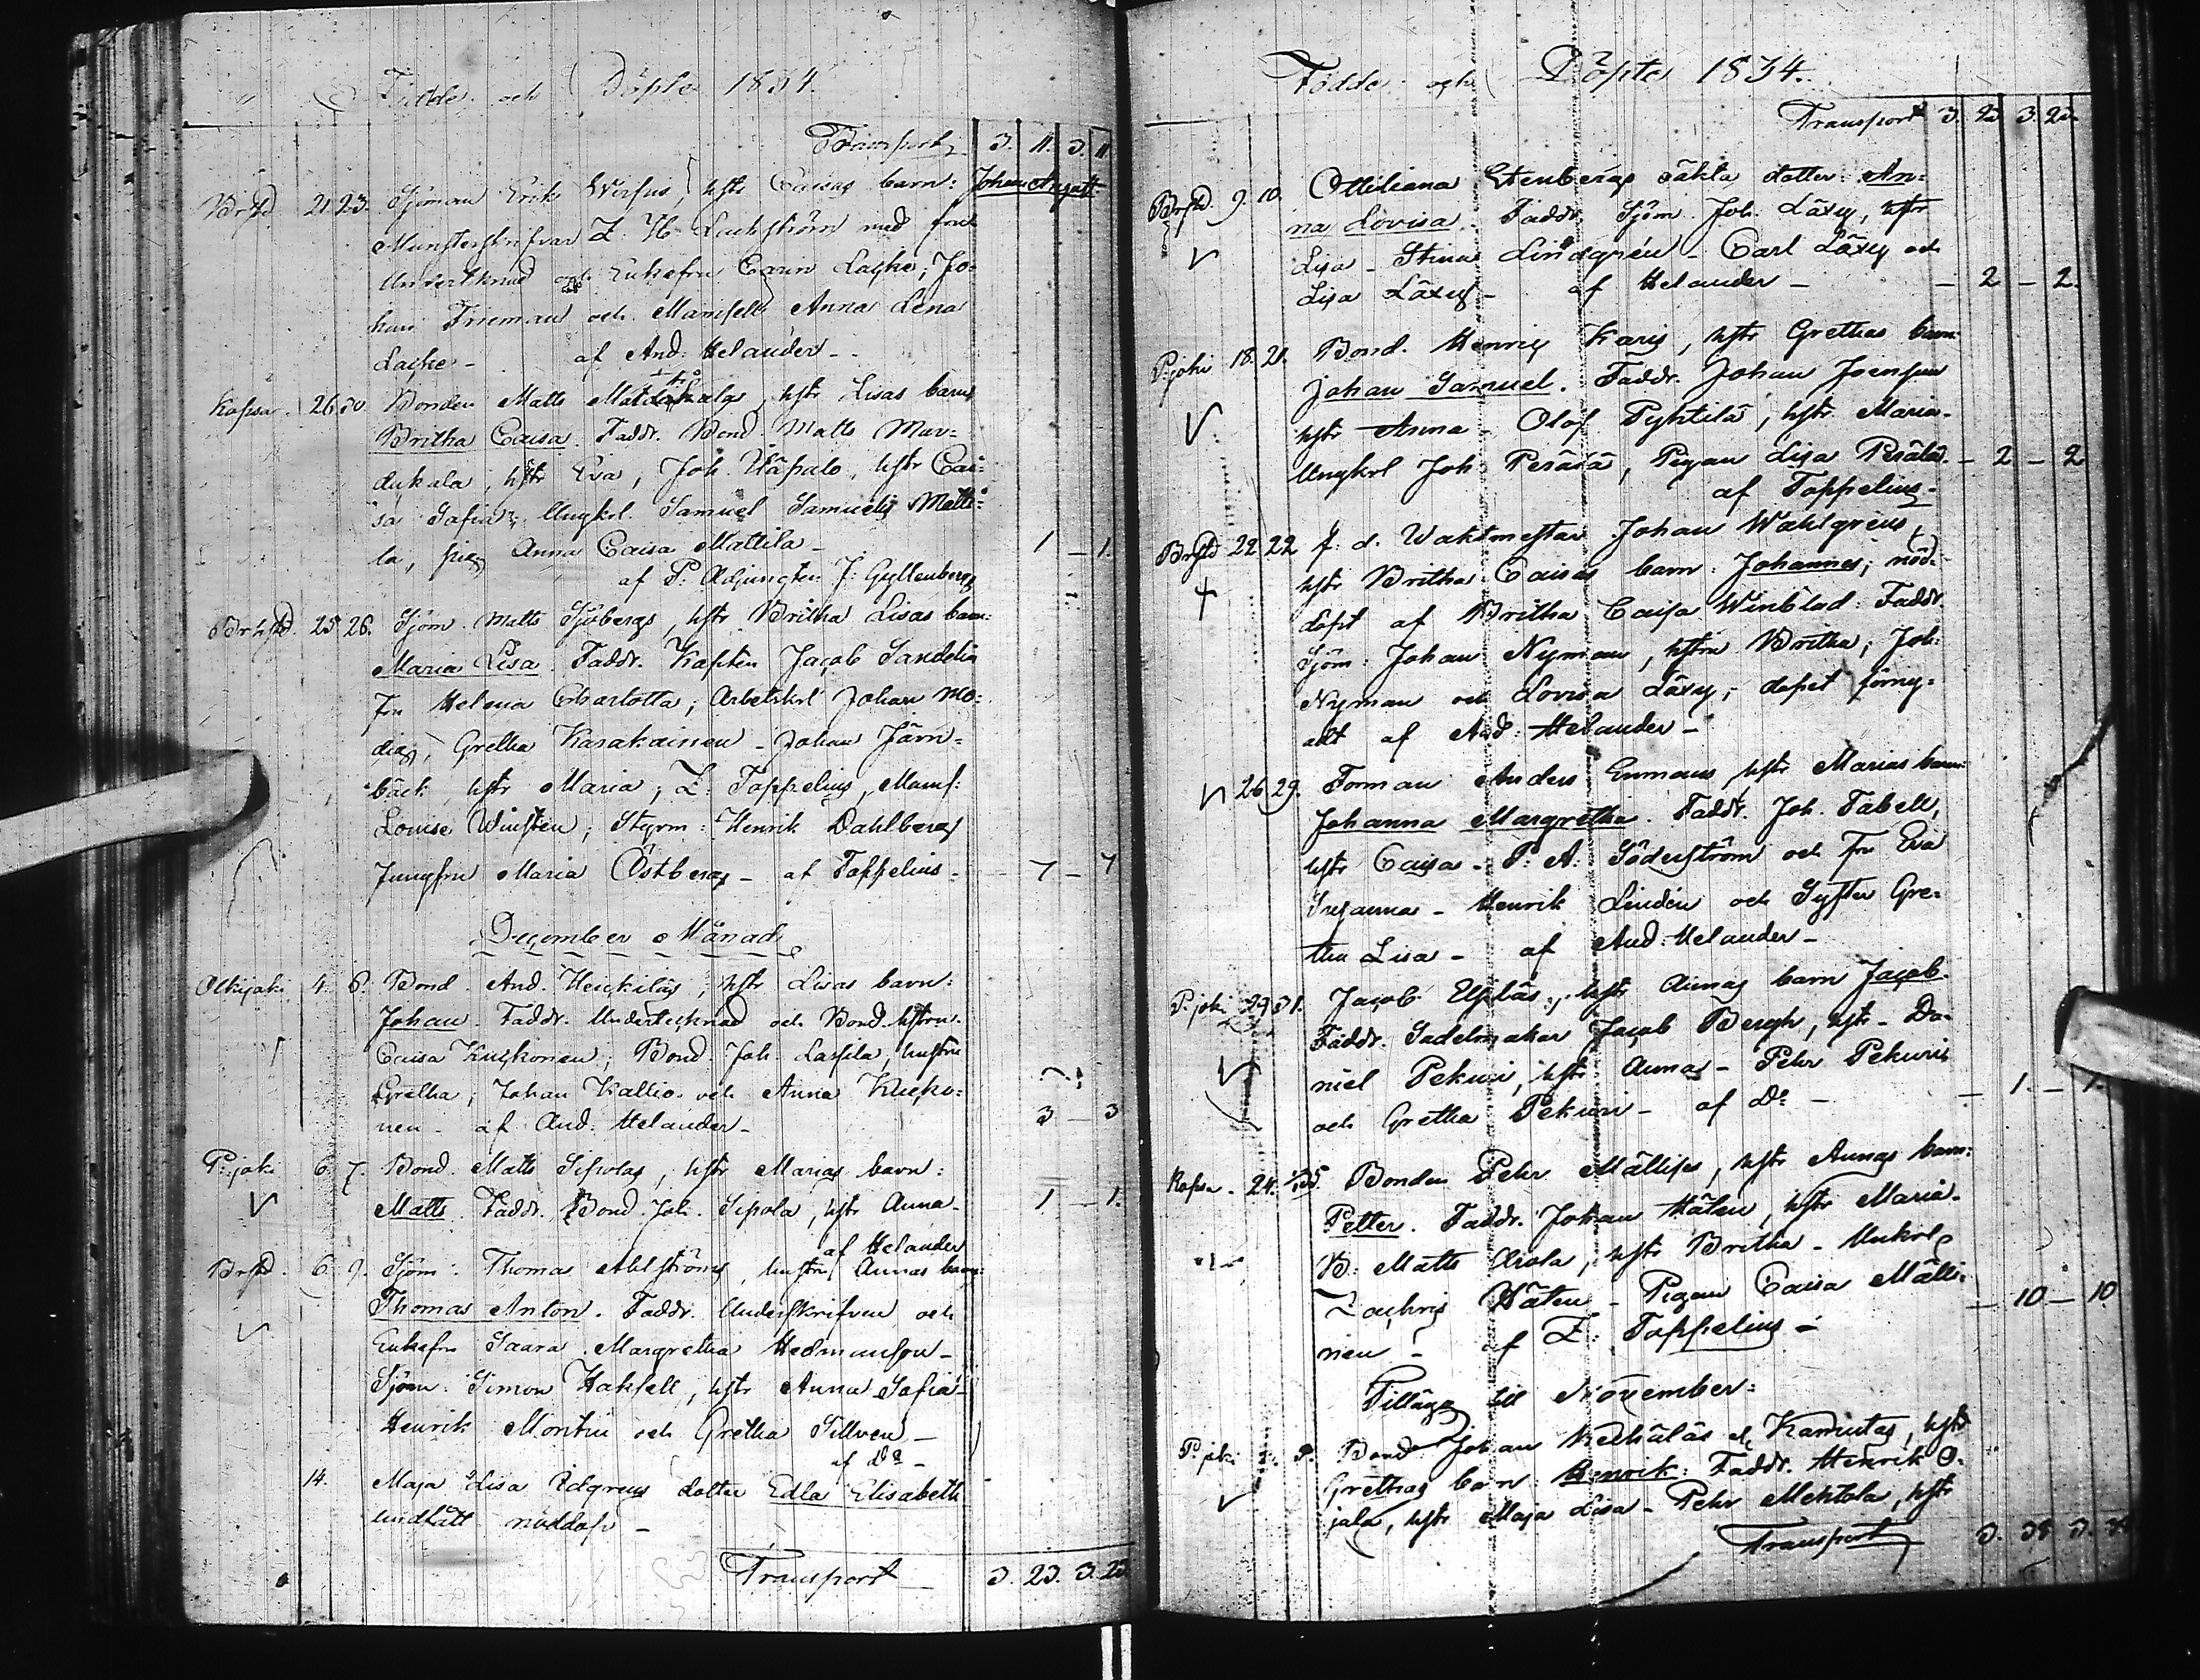 Födde och Döpte 1834.
Transport 3. 11. 3. 11
Brstd 21. 23. Sjöman Erik Wirfus, hstr Caisas barn: Johan August
Munsterskrifvar Z. H. Lackström med fru
Undertknad och Enkefru Carin Lajhe; Jo-
han Frieman och Mamsell Anna Lena
Lajhe - af And: Helander -
Kopsa. 26. 30 Bonden Matts hstr Lisas barn
Britha Caisa. Faddr. Bond. Matts Mar-
dukala, hstr Eva, Joh. Uäpalo, hstr Cai-
sa Safia; Ungkrl. Samuel Samuels Matti-
la, pig Anna Caisa Mattila - 1 - 1.
af P: Adjungten J: Gyllenberg
Brhstd. 25 26. Sjöm. Matts Sjöbergs, hstr Britha Lisas barn:
Maria Lisa. Faddr. Kapten Jacob Sandelin
Fru Helena Charlotta; Arbetskrl Johan Mo-
dig, Gretha Karakainen - Johan Järn-
bäck hstr Maria, Z. Toppelius, Mams:
Louise Winsten; Styrm: Henrik Dahlberg
Jungfru Maria Östberg - af Toppelius - 7 - 7
December Månad
Olkijoki 4. 6. Bond. And. Heickiläs, hstr Lisas barn:
Johan. Faddr. Undertecknad och Bond. hstrn
Caisa Kuckonen; Bond. Joh. Lassila, hustru
Gretha; Johan Kallio och Anna Kucko-
nen - af And: Helander - 3 - 3
P:joki 6. 7. Bond. Matts Sipolas, hstr Marias barn:
Matts. Faddr. Bond. Joh. Sipola, hstr Anna - 1 - 1.
af Helander
Brstd. 6. 9. Sjöm: Thomas Ahlströms, hustru Annas barn:
Thomas Anton. Faddr. Underskrifven och
Enkefru Saara Margretha Hedmanson -
Sjöm: Simon Hakfell, hstr Anna Safia -
Henrik Montin och Gretha Sillven -
af Do -
14. Maja Lisa Edgrens dotter Edla Elisabeth
undfått nöddop -
Transport 3. 23. 3. 23
Födde och Döpte 1834.
Transport 3. 23 3. 23.
Brstd. 9. 10. Ottiliana Stenbergs oäkta dotter: An-
na Lovisa. Faddr. Sjöm. Joh. Läxy, hstr
Lisa - Stina Lindgrén - Carl Läxy och
Lisa Läxy - af Helander - - 2 - 2.
P:joki 18. 21. Bond. Henric Karis, hstr Grethas barn:
Johan Samuel. Faddr. Johan Joensuu
hstr Anna - Olof Pyhtilä, hstr Maria -
Ungkrl Joh. Perärä, Pigan Lisa Perälä. - 2 - 2
af Toppelius -
Brstd 22. 22 f. d. Waktmestar Johan Wahlgrens,
hstr Britha Caisas barn: Johannes; nöd-
döpt af Britha Caisa Winblad: Faddr.
Sjöm: Johan Nyman, hstru Britha; Joh.
Nyman och Lovisa Läxy; dopet förny-
adt af And: Helander -
26 29. Forman Anders Enmans hstr Marias barn:
Johanna Margretha. Faddr. Joh. Tabell,
hstr Caisa - P: A: Söderström och fru Eva
Susanna - Henrik Lindén och Syster Gre-
tha Lisa - af And: Helander -
P.joki 29 31. Jacob Elfläs, hstr Annas barn Jacob.
Faddr. Sadelmakar Jacob Bergh, hstr - Da-
niel Pekuri, hstr Anna - Pehr Pekuri
och Gretha Pekuri - af Do - - 1 - 1.
Kopsa - 24. Bonden Pehr Mällises, hstr Annas barn:
Petter. Faddr. Johan Häten, hstr Maria -
B: Matts Arola, hstr Britha - Unkrl
Zachris Häten - Pigan Caisa Mälli-
nen - af Z: Toppelius - - 10 - 10
Tillägg till November:
P. joki Bond Johan Kamutas, hstr
Grethas barn: Henrik: Faddr. Henrik O-
jala, hstr Maja Lisa - Pehr Mehtola, hstr
Transport 3. 38 3. 38